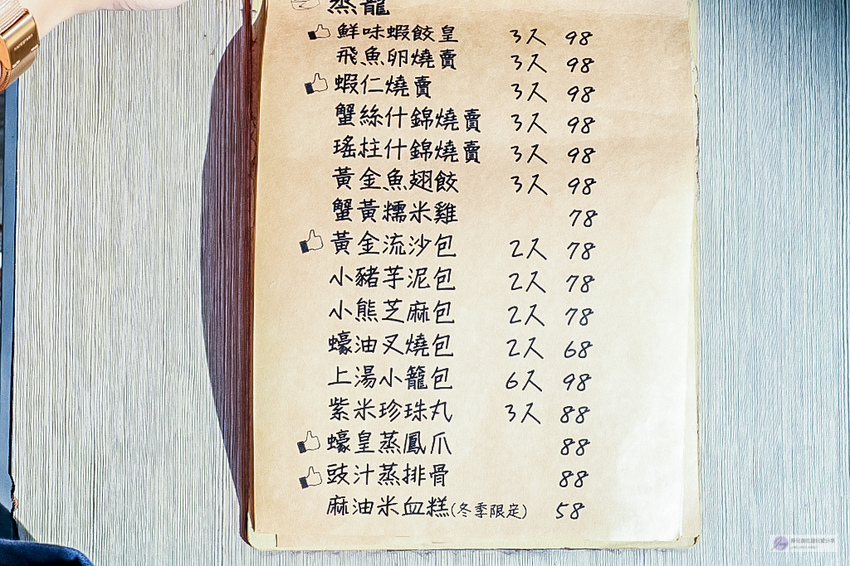 蒸籠
鮮味蝦餃皇 3入 98
飛魚卵燒賣 3入 98
蝦仁燒賣 3入 98
蟹絲什錦燒賣 3入 98
瑤柱什錦燒賣 3入 98
黃金魚翅餃 3入 98
蟹黃糯米雞 78
黃金流沙包 2入 78
小豬芋泥包 2入 78
小熊芝麻包 2入 78
蠔油叉燒包 2入 68
上湯小籠包 6入 98
紫米珍珠丸 3入 88
蠔皇蒸鳳爪 88
豉汁蒸排骨 88
麻油米血糕(冬季限定) 58